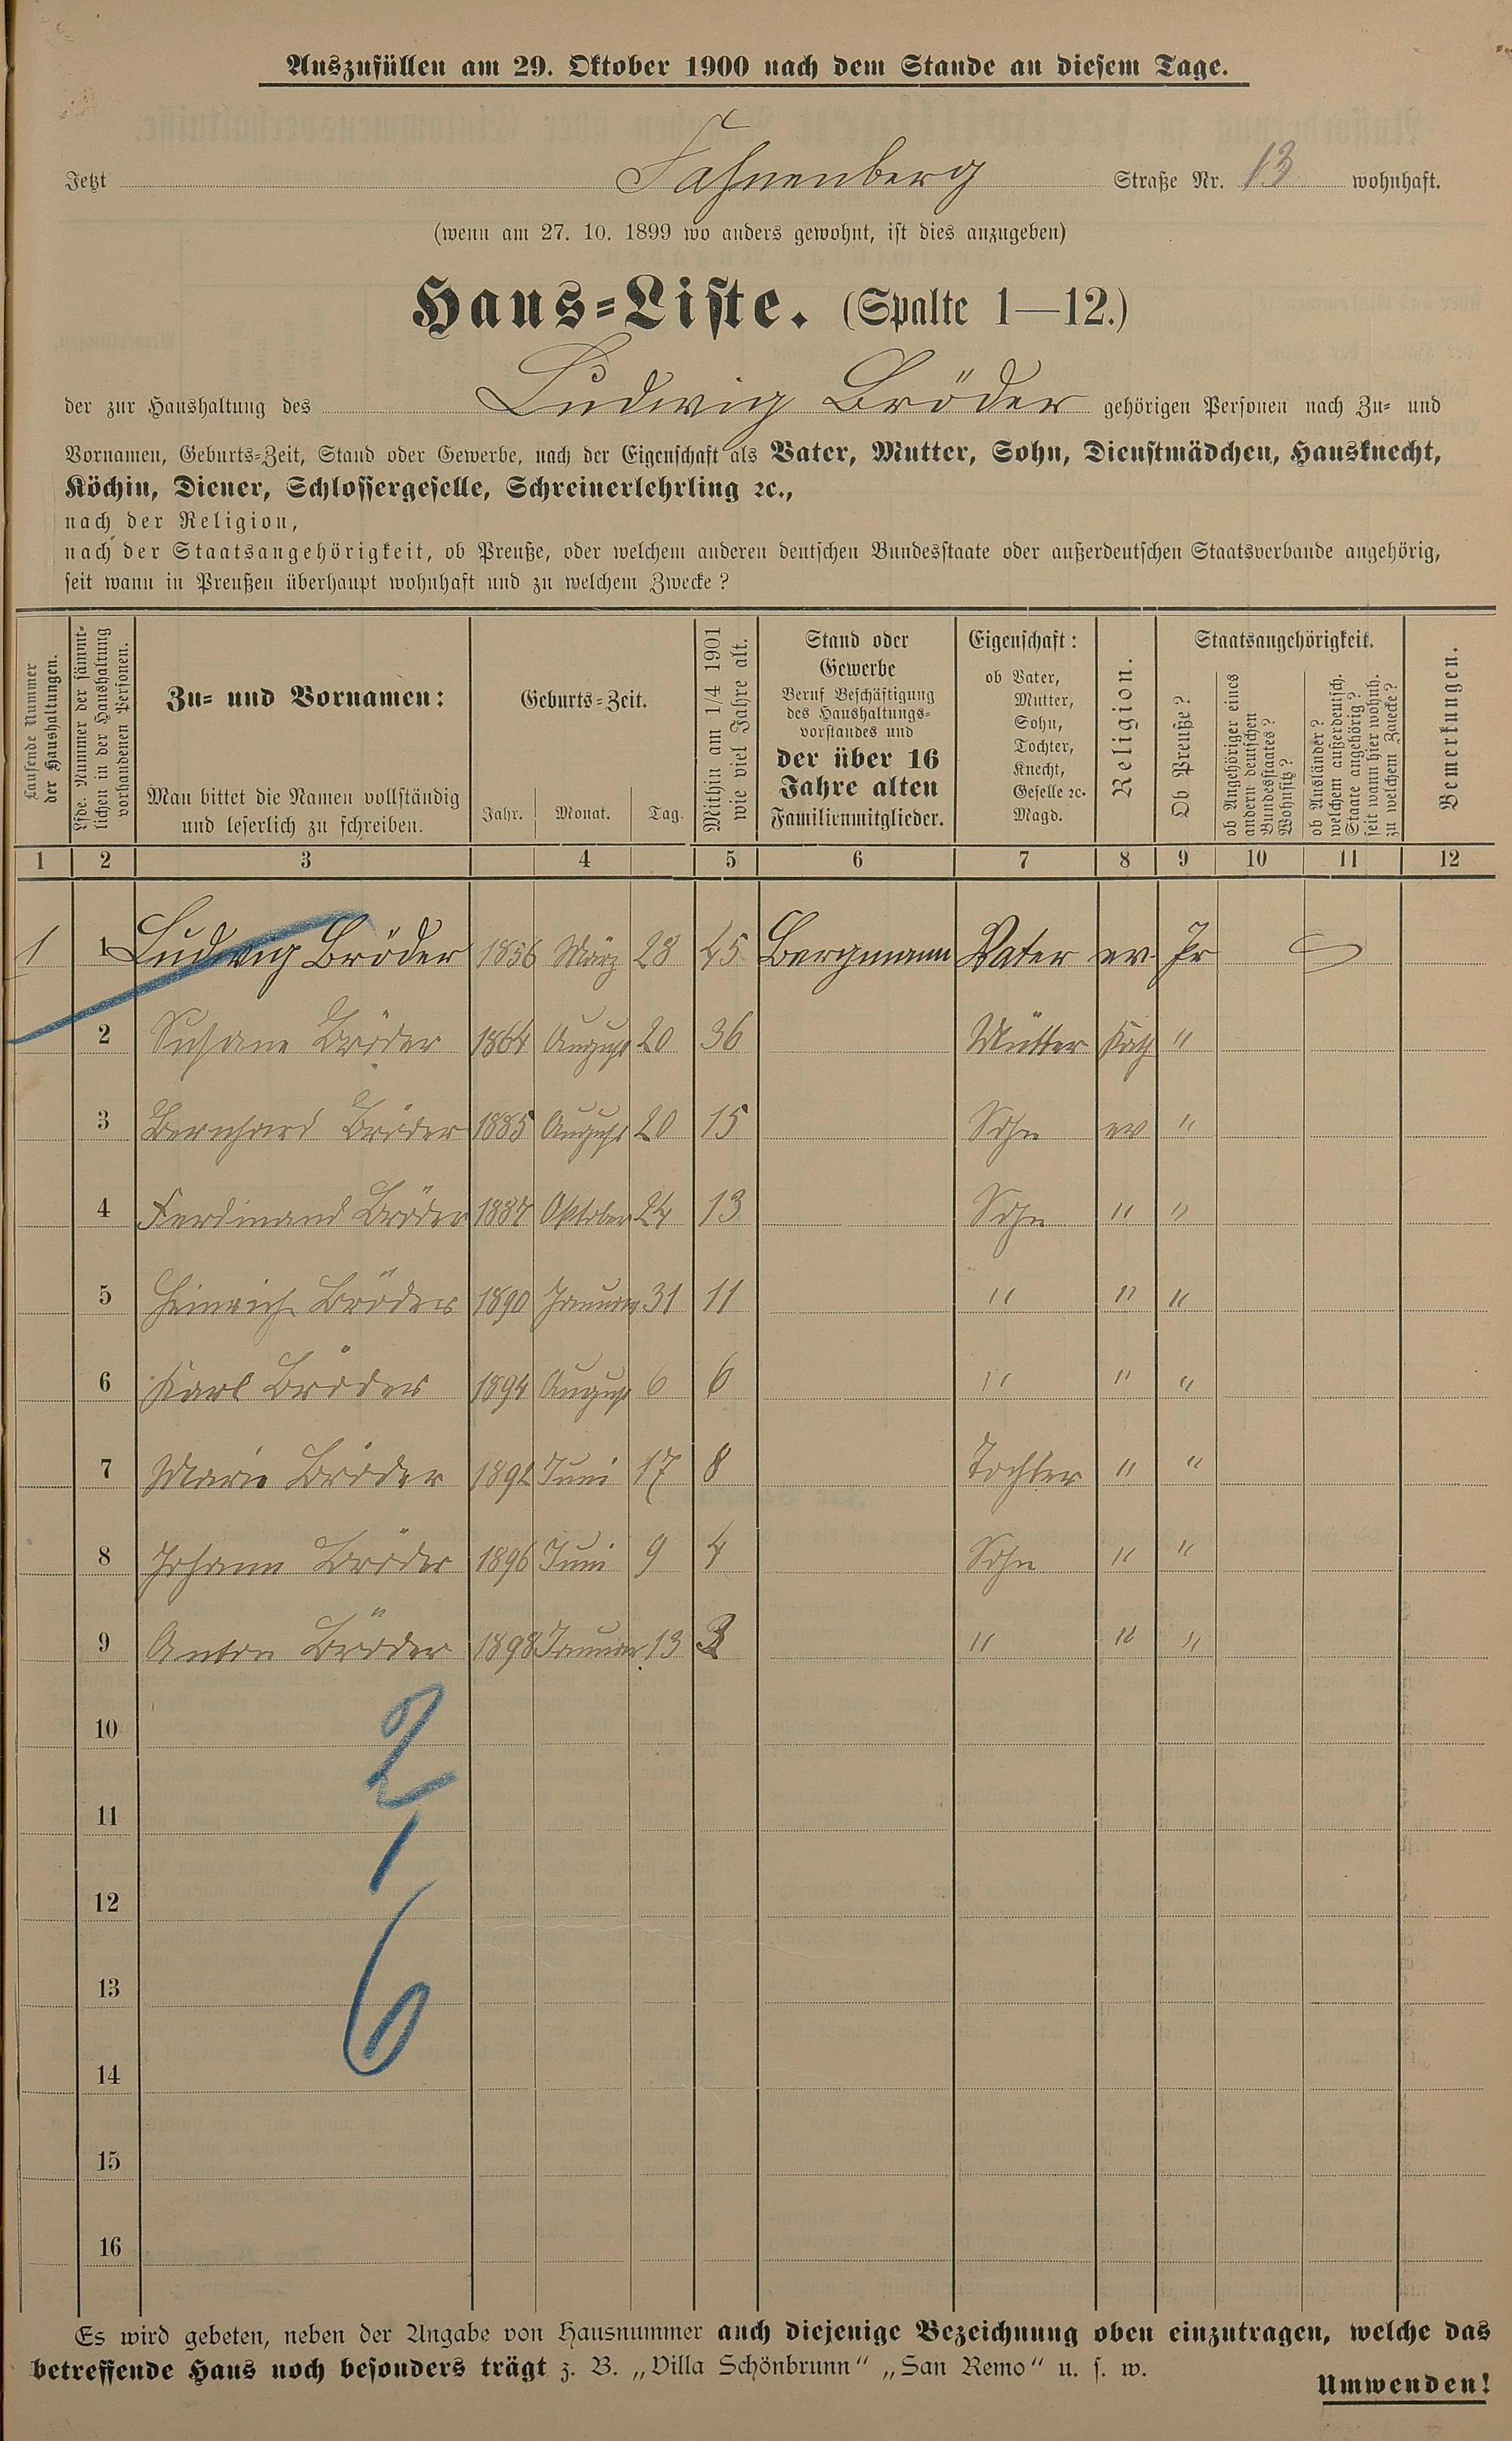 Auszufüllen am 29. Oktober 1900 nach dem Stande an diesem Tage.
Jetzt Fahnenberg Straße Nr. 13 wohnhaft.
(wenn am 27. 10. 1899 wo anders gewohnt, ist dies anzugeben)
Haus=Liste. (Spalte 1—12.)
der zur Haushaltung des Ludwig Bröder gehörigen Personen nach Zu= und
Vornamen, Geburts=Zeit, Stand oder Gewerbe, nach der Eigenschaft als Vater, Mutter, Sohn, Dienstmädchen, Hausknecht,
Köchin, Diener, Schlossergeselle, Schreinerlehrling ꝛc.,
nach der Religion,
nach der Staatsangehörigkeit, ob Preuße, oder welchem anderen deutschen Bundesstaate oder außerdeutschen Staatsverbande angehörig,
seit wann in Preußen überhaupt wohnhaft und zu welchem Zwecke?
Laufende Nummer
der Haushaltungen.
Lfde. Nummer der sämmt=
lichen in der Haushaltung
vorhandenen Personen.
Zu= und Vornamen:
Man bittet die Namen vollständig
und leserlich zu schreiben.
Geburts=Zeit.
Jahr. Monat. Tag.
Mithin am 1/4 1901
wie viel Jahre alt.
Stand oder
Gewerbe
Beruf Beschäftigung
des Haushaltungs=
vorstandes und
der über 16
Jahre alten
Familienmitglieder.
Eigenschaft:
ob Vater,
Mutter,
Sohn,
Tochter,
Knecht,
Geselle ꝛc.
Magd.
Religion.
Staatsangehörigkeit.
Ob Preuße?
ob Angehöriger eines
andern deutschen
Bundesstaates?
Wohnsitz?
ob Ausländer?
welchem außerdeutsch.
Staate angehörig?
seit wann hier wohnh.
zu welchem Zwecke?
Bemerkungen.
1 2 3 4 5 6 7 8 9 10 11 12
1 1 Ludwig Bröder 1856 März 28 45 Bergmann Vater ev. Pr
2 Susane Bröder 1864 August 20 36 Mutter Kath "
3 Bernhard Bröder 1885 August 20 15 Sohn ev "
4 Ferdinand Bröder 1887 Oktober 24 13 Sohn " "
5 Heinrich Bröder 1890 Januar 31 11 " " "
6 Karl Bröder 1894 August 6 6 " " "
7 Marie Bröder 1892 Juni 17 8 Tochter " "
8 Johann Bröder 1896 Juni 9 4 Sohn " "
9 Anton Bröder 1898 Januar 13 3 " " "
10
2
11
1
12
13
6
14
15
16
Es wird gebeten, neben der Angabe von Hausnummer auch diejenige Bezeichnung oben einzutragen, welche das
betreffende Haus noch besonders trägt z. B. „Villa Schönbrunn“ „San Remo“ u. s. w.
Umwenden!